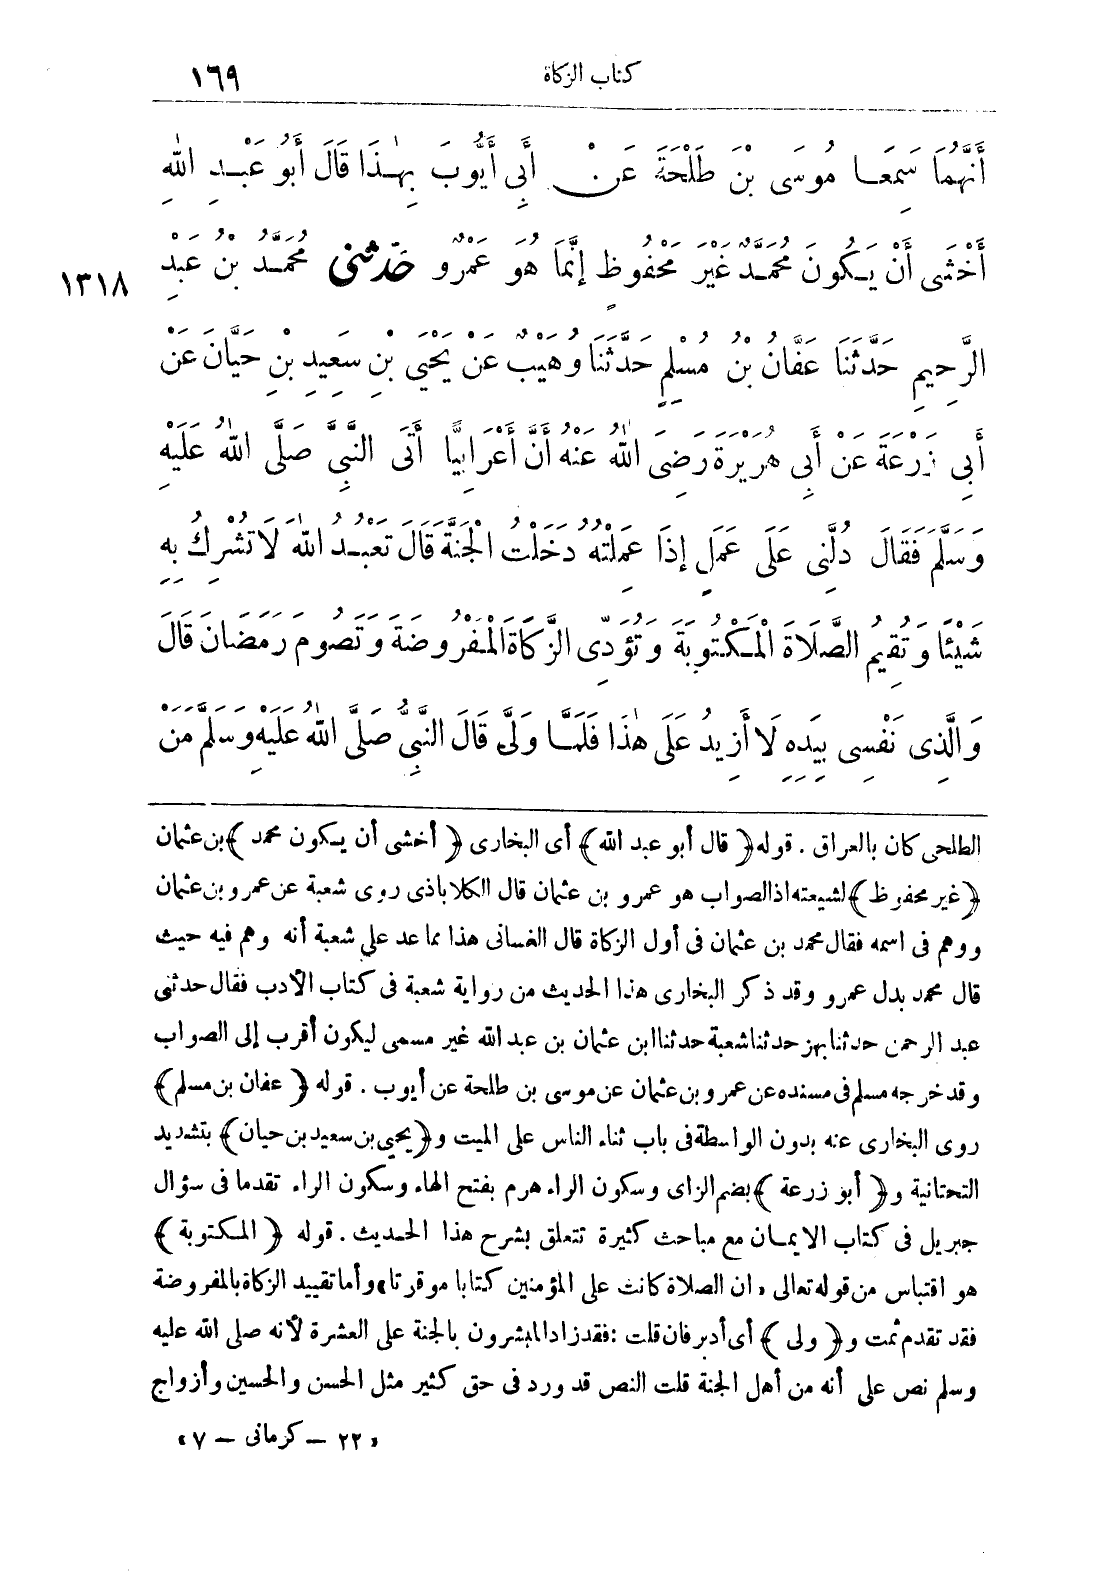 كتاب الزكاة ١٦٩
أَنَّهُمَا سَمِعَا مُوسَى بْنَ طَلْحَةَ عَنْ أَبِي أَيُّوبَ بِهٰذَا قَالَ أَبُو عَبْدِ اللهِ
أَخْشَى أَنْ يَكُونَ مُحَمَّدٌ غَيْرَ مَحْفُوظٍ إِنَّمَا هُوَ عَمْرٌو حَدَّثَنِى مُحَمَّدُ بْنُ عَبْدِ ١٣١٨
الرَّحِيمِ حَدَّثَنَا عَفَّانُ بْنُ مُسْلِمٍ حَدَّثَنَا وُهَيْبٌ عَنْ يَحْيَى بْنِ سَعِيدِ بْنِ حَيَّانَ عَنْ
أَبِى زُرْعَةَ عَنْ أَبِى هُرَيْرَةَ رَضِىَ اللهُ عَنْهُ أَنَّ أَعْرَابِيًّا أَتَى النَّبِىَّ صَلَّى اللهُ عَلَيْهِ
وَسَلَّمَ فَقَالَ دُلَّنِى عَلَى عَمَلٍ إِذَا عَمِلْتُهُ دَخَلْتُ الْجَنَّةَ قَالَ تَعْبُدُ اللهَ لَا تُشْرِكُ بِهِ
شَيْئًا وَتُقِيمُ الصَّلَاةَ الْمَكْتُوبَةَ وَتُؤَدِّى الزَّكَاةَ الْمَفْرُوضَةَ وَتَصُومَ رَمَضَانَ قَالَ
وَالَّذِى نَفْسِى بِيَدِهِ لَا أَزِيدُ عَلَى هٰذَا فَلَمَّا وَلَّى قَالَ النَّبِىُّ صَلَّى اللهُ عَلَيْهِ وَسَلَّمَ مَنْ
الطلحى كان بالعراق . قوله ﴿ قال أبو عبد الله ﴾ أى البخارى ﴿ أخشى أن يكون محمد ﴾ بن عثمان
﴿ غير محفوظ ﴾ لشيعته اذ الصواب هو عمرو بن عثمان قال الكلاباذى روى شعبة عن عمرو بن عثمان
ووهم فى اسمه فقال محمد بن عثمان فى أول الزكاة قال الغسانى هذا مما عد على شعبة أنه وهم فيه حيث
قال محمد بدل عمرو وقد ذكر البخارى هذا الحديث من رواية شعبة فى كتاب الأدب فقال حدثنى
عبد الرحمن حدثنا بهز حدثنا شعبة حدثنا ابن عثمان بن عبد الله غير مسمى ليكون أقرب إلى الصواب
وقد خرجه مسلم فى مسنده عن عمرو بن عثمان عن موسى بن طلحة عن أيوب . قوله ﴿ عفان بن مسلم ﴾
روى البخارى عنه بدون الواسطة فى باب ثناء الناس على الميت و﴿ يحيى بن سعيد بن حيان ﴾ بتشديد
التحتانية و﴿ أبو زرعة ﴾ بضم الزاى وسكون الراء هرم بفتح الهاء وسكون الراء تقدما فى سؤال
جبريل فى كتاب الايمان مع مباحث كثيرة تتعلق بشرح هذا الحديث . قوله ﴿ المكتوبة ﴾
هو اقتباس من قوله تعالى «ان الصلاة كانت على المؤمنين كتابا موقوتا» وأما تقييد الزكاة بالمفروضة
فقد تقدم ثمت و﴿ ولى ﴾ أى أدبر فان قلت : فقد زاد المبشرون بالجنة على العشرة لأنه صلى الله عليه
وسلم نص على أنه من أهل الجنة قلت النص قد ورد فى حق كثير مثل الحسن والحسين وأزواج
«٢٢ – كرمانى – ٧»